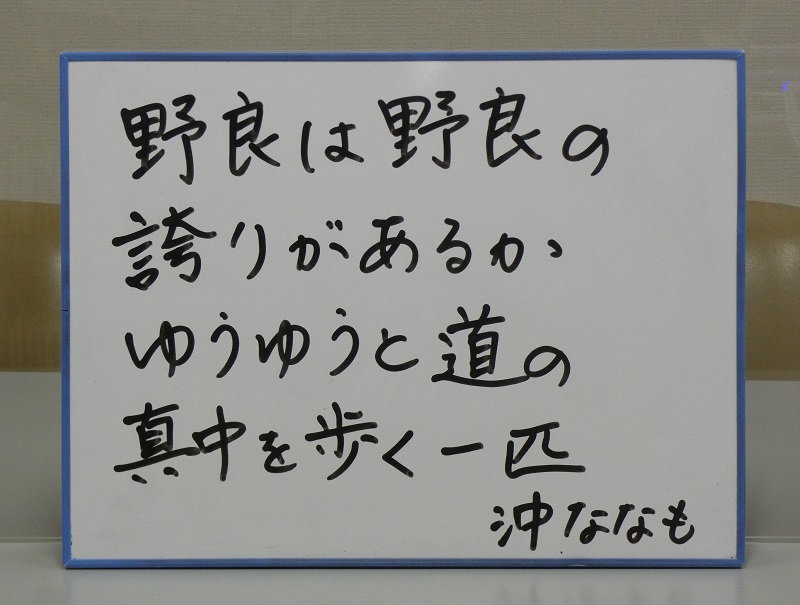 野良は野良の
誇りがあるか
ゆうゆうと道の
真中を歩く一匹
沖ななも